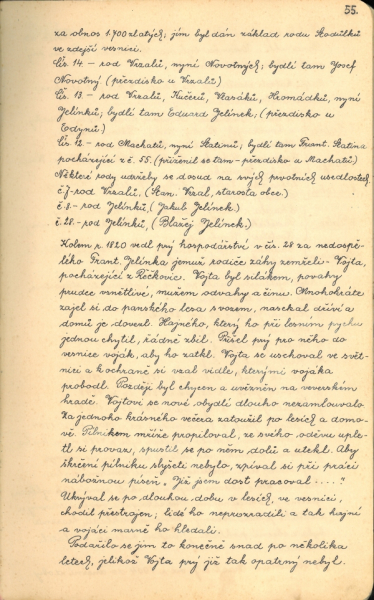 55.
za obnos 1.700 zlatých; jím byl dán základ rodu Škodůlků
ve zdejší vesnici.
Čís. 14 – rod Vrzalů, nyní Novotných; bydlí tam Josef
Novotný (přezdisko u Vrzalů)
Čís. 13. – rod Vrzalů, Kučerů, Vlasáků, Hromádků, nyní
Jelínků; bydlí tam Eduard Jelínek, (přezdisko u
Edynů)
Čís. 12. – rod Machatů, nyní Šlatinů; bydlí tam Frant. Šlatina
pocházející z č. 55. (přiženil se tam – přezdisko u Machatů)
Některé rody udržely se dosud na svých prvotních usedlostech
č. 7. – rod Vrzalů, (Stan. Vrzal, starosta obec.)
č. 8. – rod Jelínků, (Jakub Jelínek.)
č. 28. – rod Jelínků, (Blažej Jelínek.)
Kolem r. 1820 vedl prý hospodářství v čís. 28 za nedospě-
lého Frant. Jelínka jemuž rodiče záhy zemřeli – Vojta,
pocházející z Řečkovic. Vojta byl silákem, povahy
prudce vznětlivé, mužem odvahy a činu. Mnohokráte
zajel si do panského lesa s vozem, nasekal dříví a
domů je dovezl. Hajného, který ho při lesním pychu
jednou chytil, řádně zbil. Přišel prý pro něho do
vesnice voják, aby ho zatkl. Vojta se uschoval ve svět-
nici a k ochraně si vzal vidle, kterými vojáka
probodl. Později byl chycen a uvězněn na veverském
hradě. Vojtovi se nové obydlí dlouho nezamlouvalo
Za jednoho krásného večera zatoužil po lesích a domo-
vě. Pilníkem mříže propiloval, ze svého oděvu uple-
tl si provaz, spustil se po něm dolů a utekl. Aby
skřčení pilníku slyšeti nebylo, zpíval si při práci
nábožnou píseň „Již jsem dost pracoval ....."
Ukrýval se po dlouhou dobu v lesích, ve vesnici,
chodil přestrojen; lidé ho neprozradili a tak hajní
a vojáci marně ho hledali.
Podařilo se jim to konečně snad po několika
letech, jelikož Vojta prý již tak opatrný nebyl.